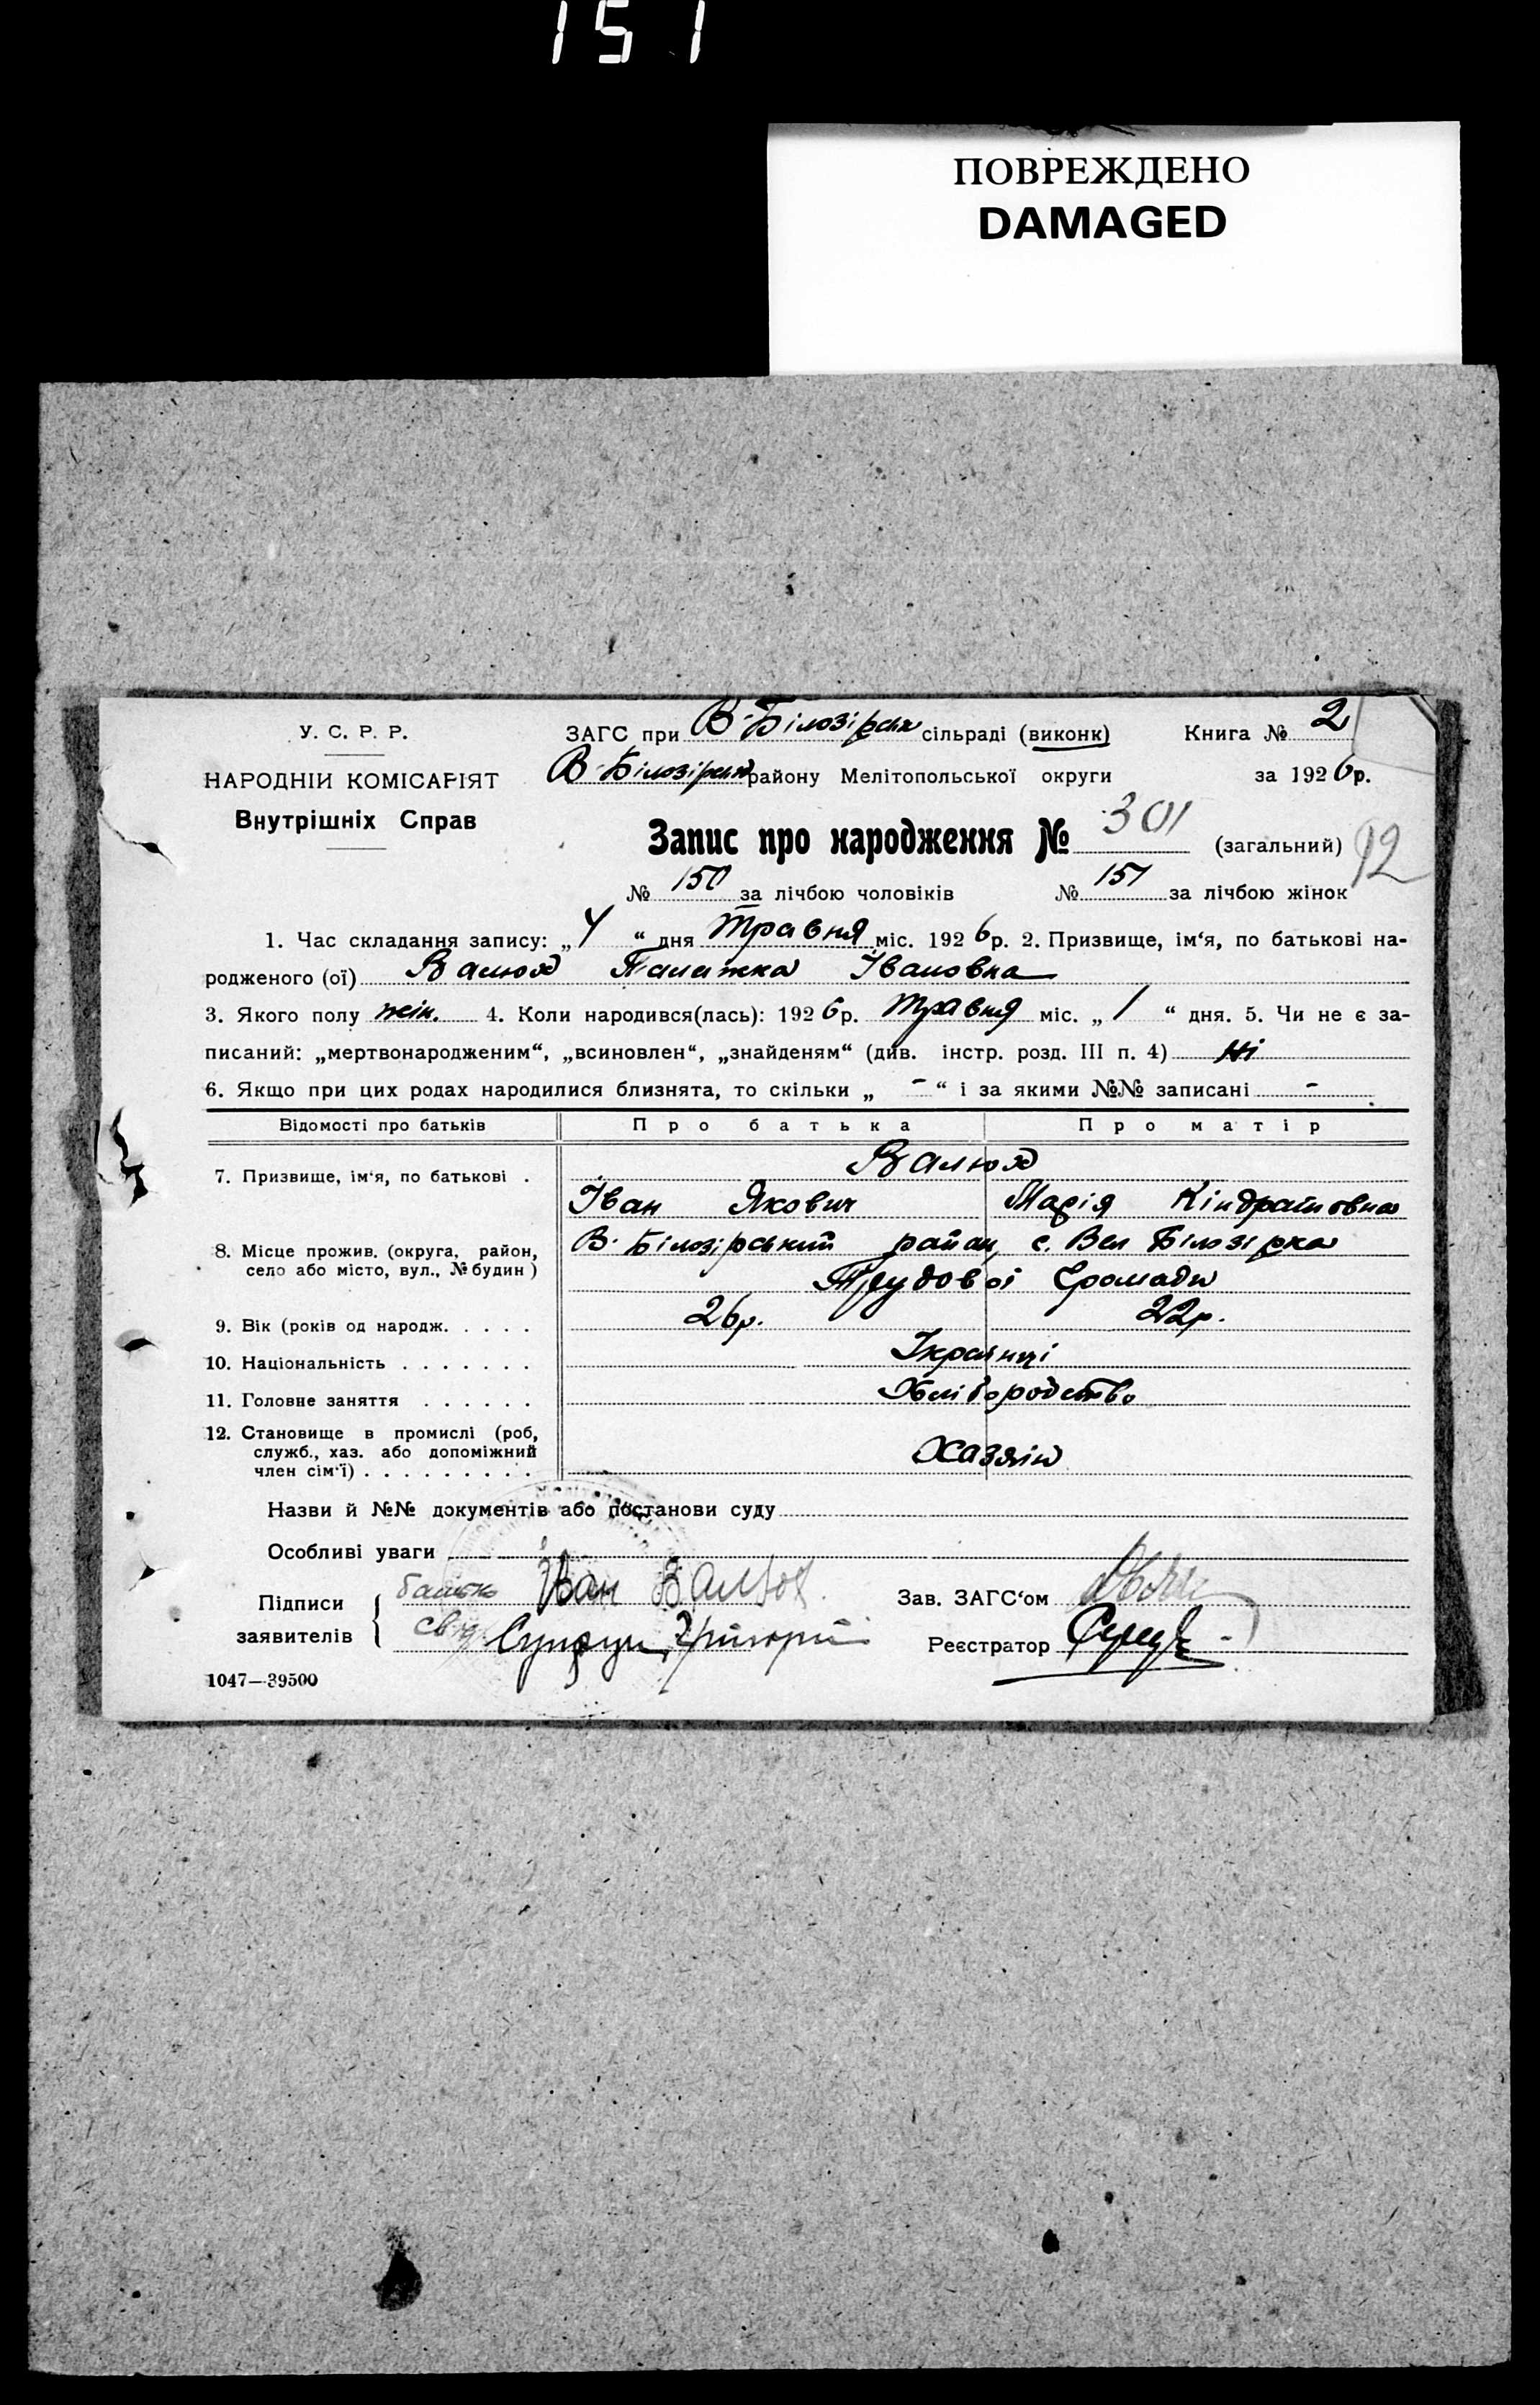 151
ПОВРЕЖДЕНО
DAMAGED
У. С. Р. Р.
НАРОДНІЙ КОМІСАРІЯТ
Внутрішніх Справ
ЗАГС при В-Білозірськ сільраді (виконк)
Книга № 2
В-Білозірськ району Мелітопольської округи
за 1926 р.
Запис про народження № 301 (загальний)
92
№ 150 за лічбою чоловіків № 151 за лічбою жінок
1. Час складання запису: „ 4 “ дня Травня міс. 1926 р. 2. Призвище, ім‘я, по батькові на-
родженого (ої) Валюх Палажка Івановна
3. Якого полу жін. 4. Коли народився(лась): 1926 р. Травня міс. „ 1 “ дня. 5. Чи не є за-
писаний: „мертвонародженим“, „всиновлен“, „знайденям“ (див. інстр. розд. III п. 4) Ні
6. Якщо при цих родах народилися близнята, то скільки „ - “ і за якими №№ записані -
Відомості про батьків Про батька Про матір
7. Призвище, ім‘я, по батькові . Валюх
Іван Якович Марія Кіндратовна
8. Місце прожив. (округа, район, село або місто, вул., № будин) В. Білозірський район, с. Вел Білозірка
Трудової Громади
9. Вік (років од народж. . . . . 26 р. 22 р.
10. Національність . . . . . . . Українці
11. Головне заняття . . . . . . Хліборобство
12. Становище в промислі (роб, служб., хаз. або допоміжний член сім‘ї) . . . . . . . . . Хазяїн
Назви й №№ документів або постанови суду
Особливі уваги
Підписи заявителів
батько Іван Валюх
свід. Супрун Григорій
Зав. ЗАГС‘ом
Реєстратор
1047—39500